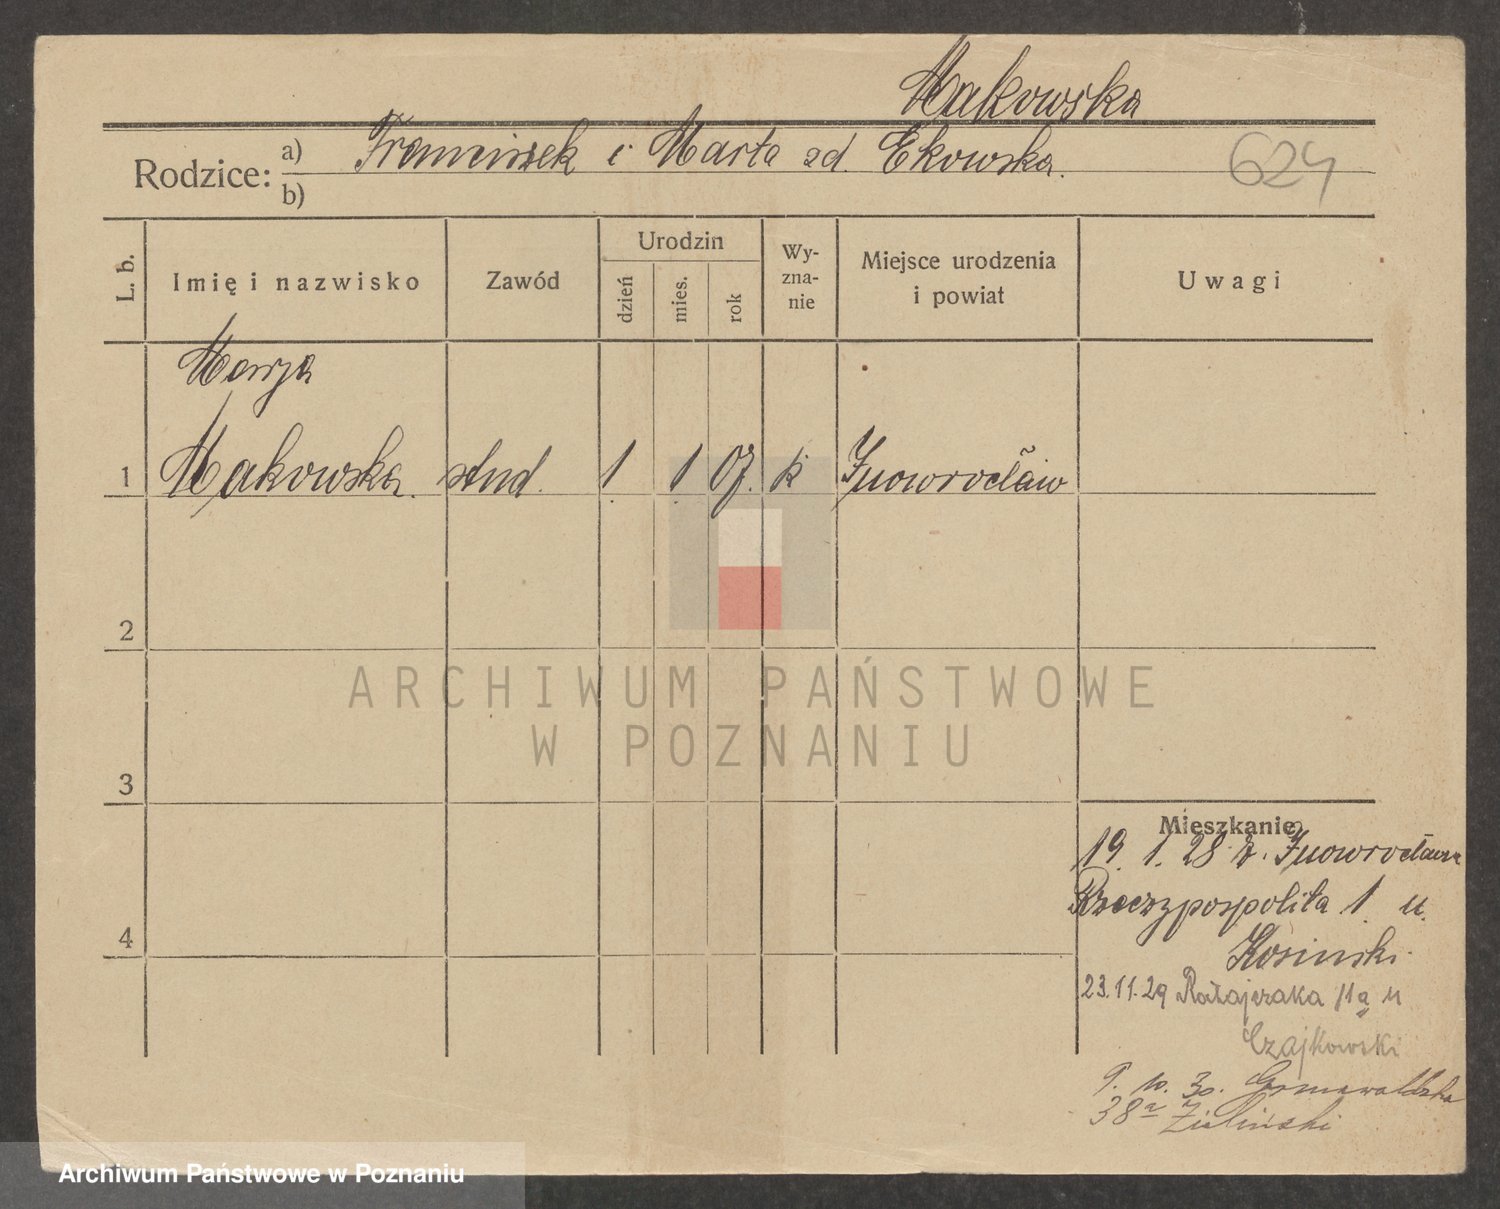 Makowska
Rodzice: a) Franciszek i Marta zd. Ekowska.
b)
624
L. b.
Imię i nazwisko
Zawód
Urodzin
dzień
mies.
rok
Wy-
zna-
nie
Miejsce urodzenia
i powiat
Uwagi
Marja
1 Makowska. stud. 1 1 07. k Inowrocław
2
3
4
Mieszkanie
19. 1. 28 z. Inowrocławia
Rzeczypospolita 1. u.
Kosinski.
23.11.29 Ratajczaka 11a u
Czajkowski
9. 10. 30. Grunwaldzka
38a Zieliński
ARCHIWUM PAŃSTWOWE
W POZNANIU
Archiwum Państwowe w Poznaniu